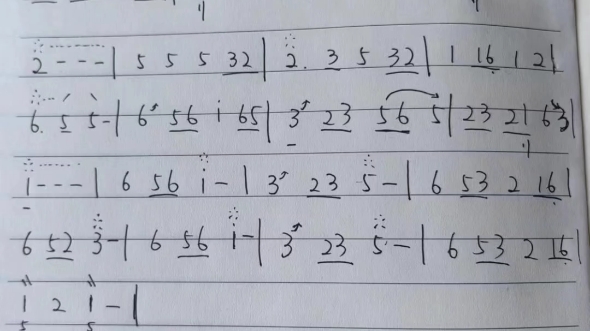 2 - - - | 5 5 5 32 | 2. 3 5 32 | 1 16 1 2 |
6. 5 5 - | 6 56 i 65 | 3 23 56 5 | 23 21 63 |
1 - - - | 6 56 i - | 3 23 5 - | 6 53 2 16 |
6 52 3 - | 6 56 i - | 3 23 5 - | 6 53 2 16 |
1 2 1 - |
5 5